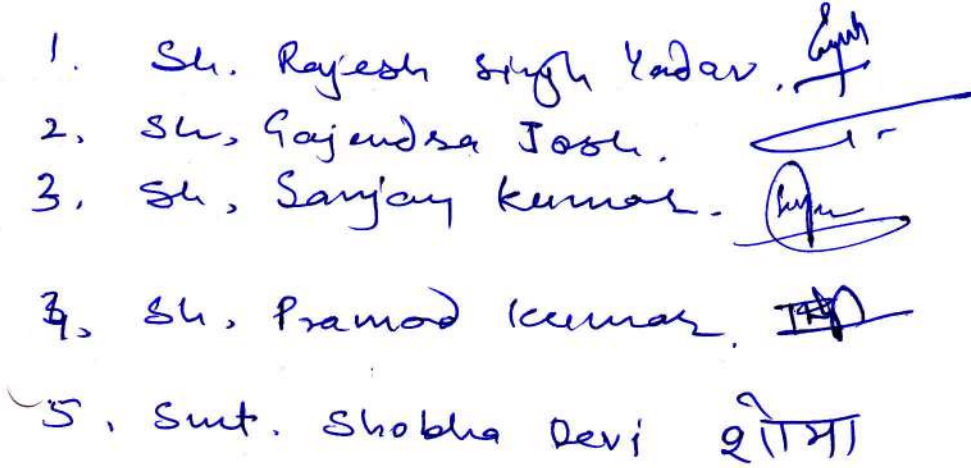 1. Sh. Rajesh Singh Yadav.
2, Sh, Gajendra Josh.
3, Sh, Sanjay Kumar.
4, Sh, Pramod Kumar.
5, Smt. Shobha Devi शोभा